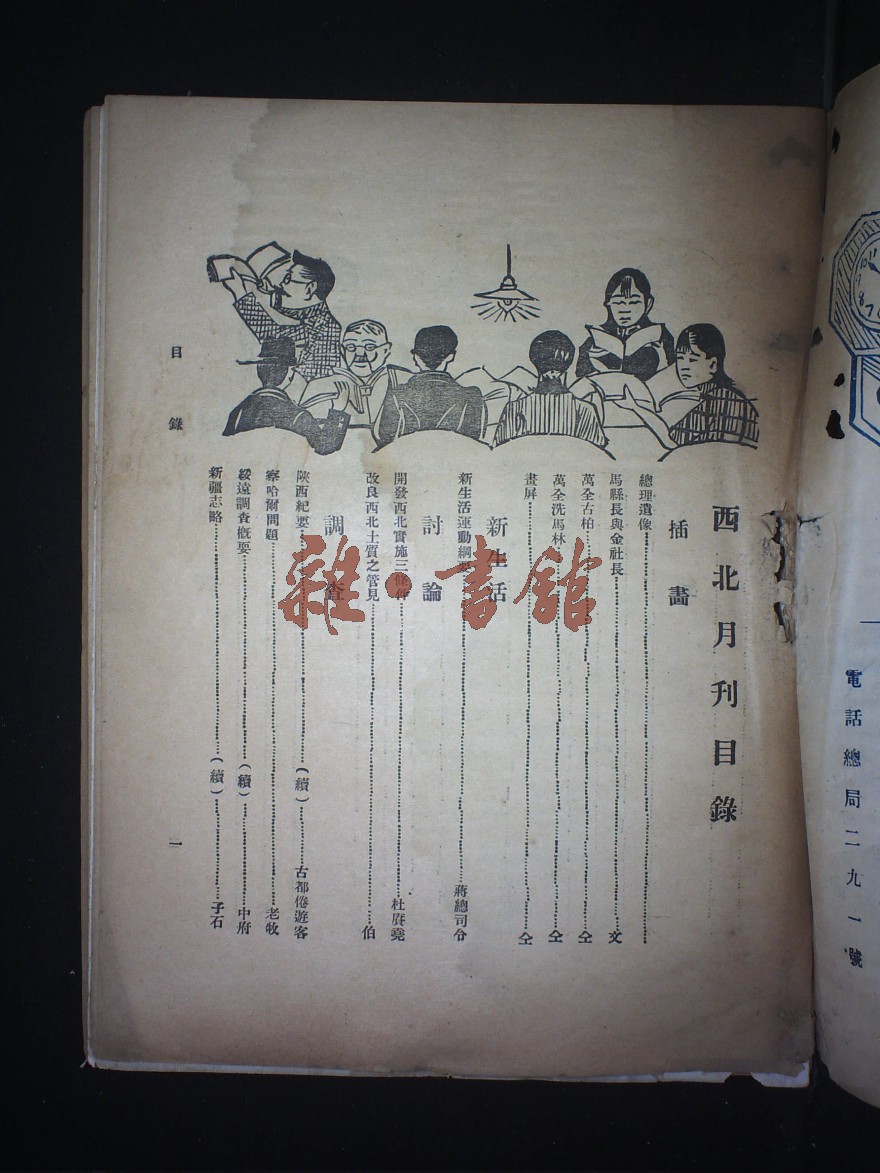 西北月刊目錄
插畫
總理遺像
馬縣長與金社長……文
萬全古柏……仝
萬全洗馬林……仝
畫屏……仝
新生活
新生活運動綱要……蔣總司令
討論
開發西北實施三條件……杜賡堯
改良西北土質之管見……伯
調查
陝西紀要……(續)……古都倦遊客
察哈爾問題……老牧
綏遠調查概要……(續)……中府
新疆志略……(續)……子石
目錄
一
雜·書館
電話總局二九一號